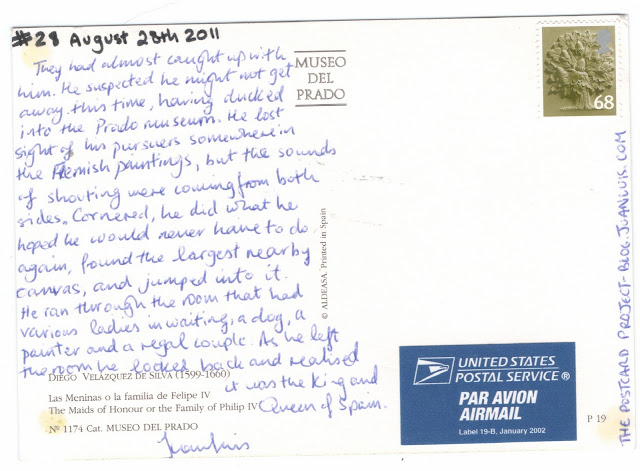 #28 August 28th 2011
They had almost caught up with
him. He suspected he might not get
away this time, having ducked
into the Prado museum. He lost
sight of his pursuers somewhere in
the Flemish paintings, but the sounds
of shouting were coming from both
sides. Cornered, he did what he
hoped he would never have to do
again, found the largest nearby
canvas, and jumped into it.
He ran through the room that had
various ladies in waiting, a dog, a
painter and a regal couple. As he left
the room he looked back and realised
it was the King and
Queen of Spain.
JuanLuis
DIEGO VELÁZQUEZ DE SILVA (1599-1660)
Las Meninas o la familia de Felipe IV
The Maids of Honour or the Family of Philip IV
Nº 1174 Cat. MUSEO DEL PRADO
MUSEO
DEL
PRADO
© ALDEASA Printed in Spain
68
UNITED STATES
POSTAL SERVICE®
PAR AVION
AIRMAIL
Label 19-B, January 2002
P 19
THE POSTCARD PROJECT-BLOG.JUANLUIS.COM